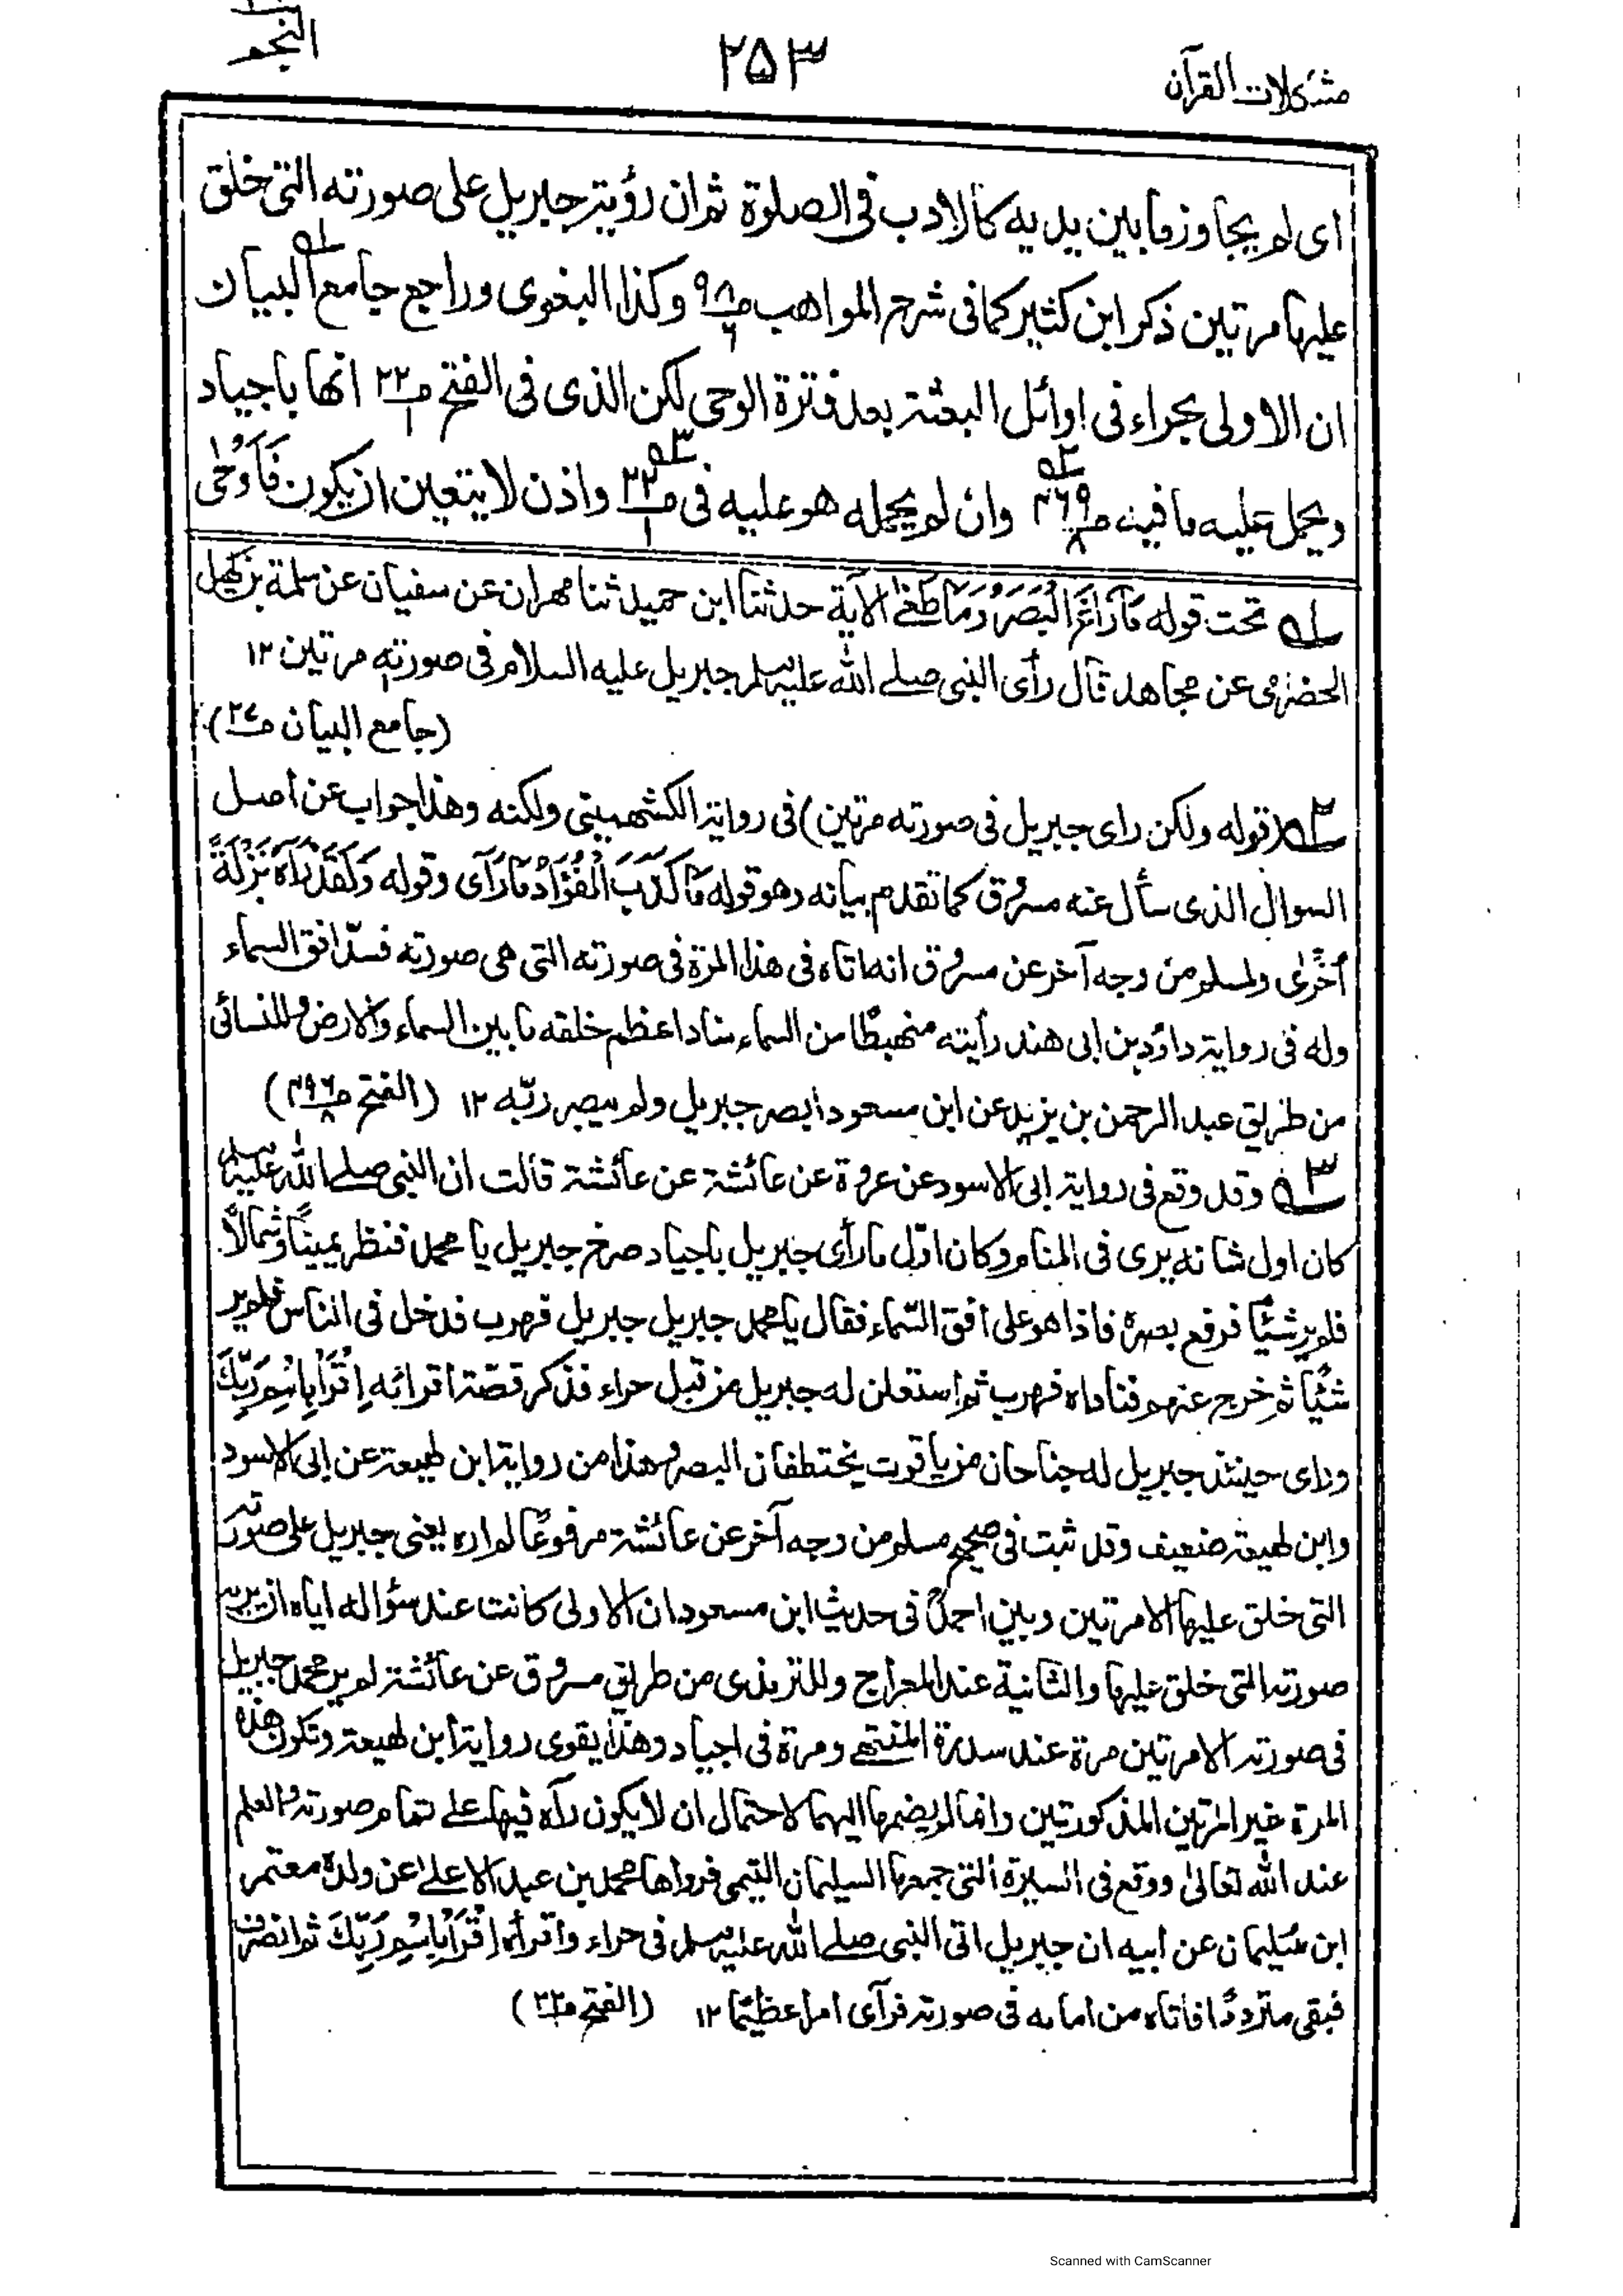 مشكلات القرآن
٢٥٣
النجم
اى لم يجاوز ما بين يديه كالادب فى الصلوة ثم ان رؤيته جبريل على صورته التى خلق
عليها مرتين ذكر ابن كثير كما فى شرح المواهب ص٩٨/٦ وكذا البغوى وراجع جامع البيان ١ه
ان الاولى بحراء فى اوائل البعثة بعد فترة الوحى لكن الذى فى الفتح ص٢٢/١ انها باجياد
ويحمل عليه ما فيه ص٤٦٩/٨ ٢ه وان لم يحمله هو عليه فى ص٢٢/١ ٣ه واذن لا يتعين ان يكون فَاَوْحٰى
١ه تحت قوله مَا زَاغَ الْبَصَرُ وَمَا طَغٰى الآية حدثنا ابن حميد ثنا مهران عن سفيان عن سلمة بن كهيل
الحضرمى عن مجاهد قال رأى النبى صلے الله عليه وسلم جبريل عليه السلام فى صورته مرتين ١٢
(جامع البيان ص٢٧)
٢ه (قوله ولكن راى جبريل فى صورته مرتين) فى رواية الكشميهنى ولكنه وهذا جواب عن اصل
السوال الذى سأل عنه مسروق كما تقدم بيانه وهو قوله مَا كَذَبَ الْفُؤَادُ مَا رَآى وقوله وَلَقَدْ رَآهُ نَزْلَةً
اُخْرٰى ولمسلم من وجه آخر عن مسروق انه اتاه فى هذا المرة فى صورته التى هى صورته فسدّ افق السماء
وله فى رواية داؤد بن ابى هند رأيته منهبطًا من السماء سادا عظم خلقه ما بين السماء والارض وللنسائى
من طريق عبد الرحمن بن يزيد عن ابن مسعود ابصر جبريل ولم يبصر ربّه ١٢ (الفتح ص٤٩٦/٨)
٣ه وقد وقع فى رواية ابى الاسود عن عروة عن عائشة عن عائشة قالت ان النبى صلے الله عليه وسلم
كان اول شانه يرى فى المنام وكان اوّل ما رأى جبريل باجياد صرخ جبريل يا محمد فنظر يمينًا وشمالًا
فلم ير شيئًا فرفع بصره فاذا هو على افق السّماء فقال يا محمد جبريل جبريل فهرب فدخل فى الناس فلم ير
شيئًا ثم خرج عنهم فناداه فهرب ثم استعلن له جبريل من قبل حراء فذكر قصّة اقرائه اِقْرَأْ بِاسْمِ رَبِّكَ
وراى حينئذ جبريل له جناحان من ياقوت يختطفان البصر وهذا من رواية ابن لهيعة عن ابى الاسود
وابن لهيعة ضعيف وقد ثبت فى صحيح مسلم من وجه آخر عن عائشة مرفوعًا لم اره يعنى جبريل على صورته
التى خلق عليها الا مرتين وبين احمدُ فى حديث ابن مسعود ان الاولى كانت عند سؤاله اياه ان يريه
صورته التى خلق عليها والثانية عند المعراج وللترمذى من طريق مسروق عن عائشة لم ير محمد جبريل
فى صورته الا مرتين مرة عند سدرة المنتهے ومرة فى اجياد وهذا يقوى رواية ابن لهيعة وتكون هذه
المرة غير المرتين المذكورتين وانما لم يضمها اليهما لاحتمال ان لا يكون رآه فيها على تمام صورته والعلم
عند الله تعالىٰ ووقع فى السيرة التى جمعها السليمان التيمى فرواها محمد بن عبد الاعلے عن ولده معتمر
ابن سُليمان عن ابيه ان جبريل اتى النبى صلے الله عليه وسلم فى حراء واقرأه اِقْرَأْ بِاسْمِ رَبِّكَ ثم انصرف
فبقى متردّدًا فاتاه من امامه فى صورته فرآى امرا عظيمًا ١٢ (الفتح ص٢٢/١)
Scanned with CamScanner